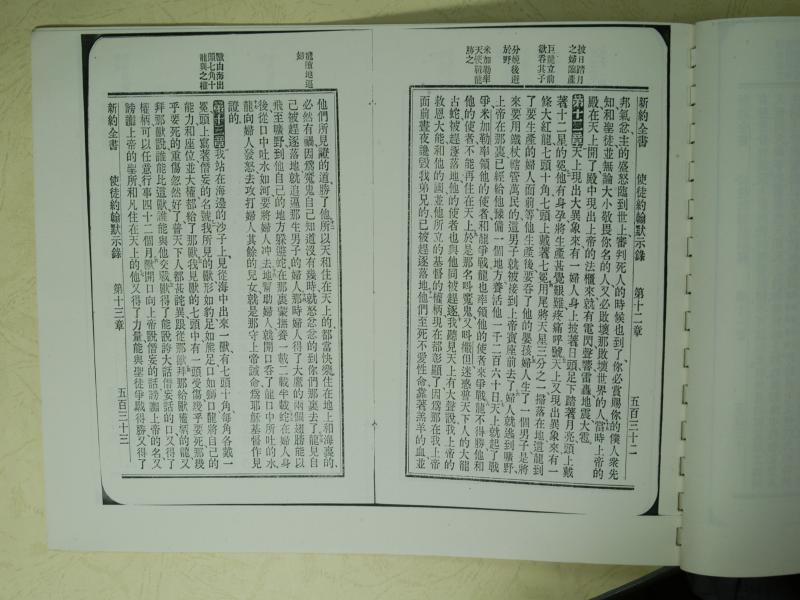 新約全書 使徒約翰默示錄 第十二章 五百三十二
邦氣忿主的盛怒臨到世上審判死人的時候也到了你必賞賜你的僕人衆先
知和聖徒並無論大小敬畏你名的人又必敗壞那敗壞世界的人當時上帝的
殿在天上開了殿中現出上帝的法櫃來就有電閃聲響雷轟地震大雹
第十二章天上現出大異象來有一婦人身上披著日頭足下踏著月亮頭上戴
著十二星的冕他有身孕將生產甚覺艱難疼痛呼號天上又現出異象來有一
條大紅龍七頭十角七頭上戴著七冕用尾將天星三分之一掃落在地這龍到
了要生產的婦人面前等他生產後要吞了他的嬰孩婦人生了一個男子是將
來要用鐵杖轄管萬民的這男子就被接到上帝寶座前去了婦人就逃到曠野
上帝在那裏已經給他豫備一個地方養活他一千二百六十日天上就起了戰
爭米加勒率領他的使者和龍爭戰龍也率領他的使者來爭戰龍不得勝他和
他的使者不能再住在天上於是那名叫魔鬼又叫撒但迷惑普天下人的大龍
古蛇被趕逐落地他的使者也與他同被趕逐我聽見天上有大聲說我上帝的
救恩大能和他的國並他所立的基督的權柄現在都彰顯了因爲那在我上帝
面前晝夜讒毀我弟兄的已被趕逐落地他們至死不愛性命靠著羔羊的血並
披日踏月
之婦臨產
巨龍立前
欲吞其子
分娩後遊
於野
米加勒率
天使戰龍
勝之
他們所見證的道勝了他所以天和住在天上的都當快樂住在地上和海裏的
必然有禍因爲魔鬼自己知道沒有幾時就忿忿的到你們那裏去了龍見自
己被趕逐落地就追逼那生男子的婦人那時婦人得了大鷹的兩個翅膀能以
飛至曠野到他自己的地方躲避蛇在那裏蒙撫養一載二載半載蛇在婦人身
後從口中吐水如河要將婦人冲去地幫助婦人就開口吞了龍口中所吐的水
龍向婦人發怒去攻打婦人其餘的兒女就是那守上帝誡命爲耶穌基督作見
證的
第十三章我站在海邊的沙子上見從海中出來一獸有七頭十角每角各戴一
冕頭上寫著僭妄的名號我所見的獸形如豹足如熊足口如獅口龍將自己的
能力和座位並大權都給了那獸我見獸的七頭中有一頭受傷幾乎要死那幾
乎要死的重傷忽然好了普天下人都甚詫異跟從那獸拜那給獸權柄的龍又
拜那獸說誰能比這獸誰能與他交戰獸得了能說誇大話僭妄話的口又得了
權柄可以任意行事四十二個月獸開口向上帝說僭妄的話謗讟上帝的名又
謗讟上帝的聖所和凡住在天上的他又得了力量能與聖徒爭戰得勝又得了
龍擅地逼
婦
獸由海出
頭七角十
龍與之權
新約全書 使徒約翰默示錄 第十三章 五百三十三